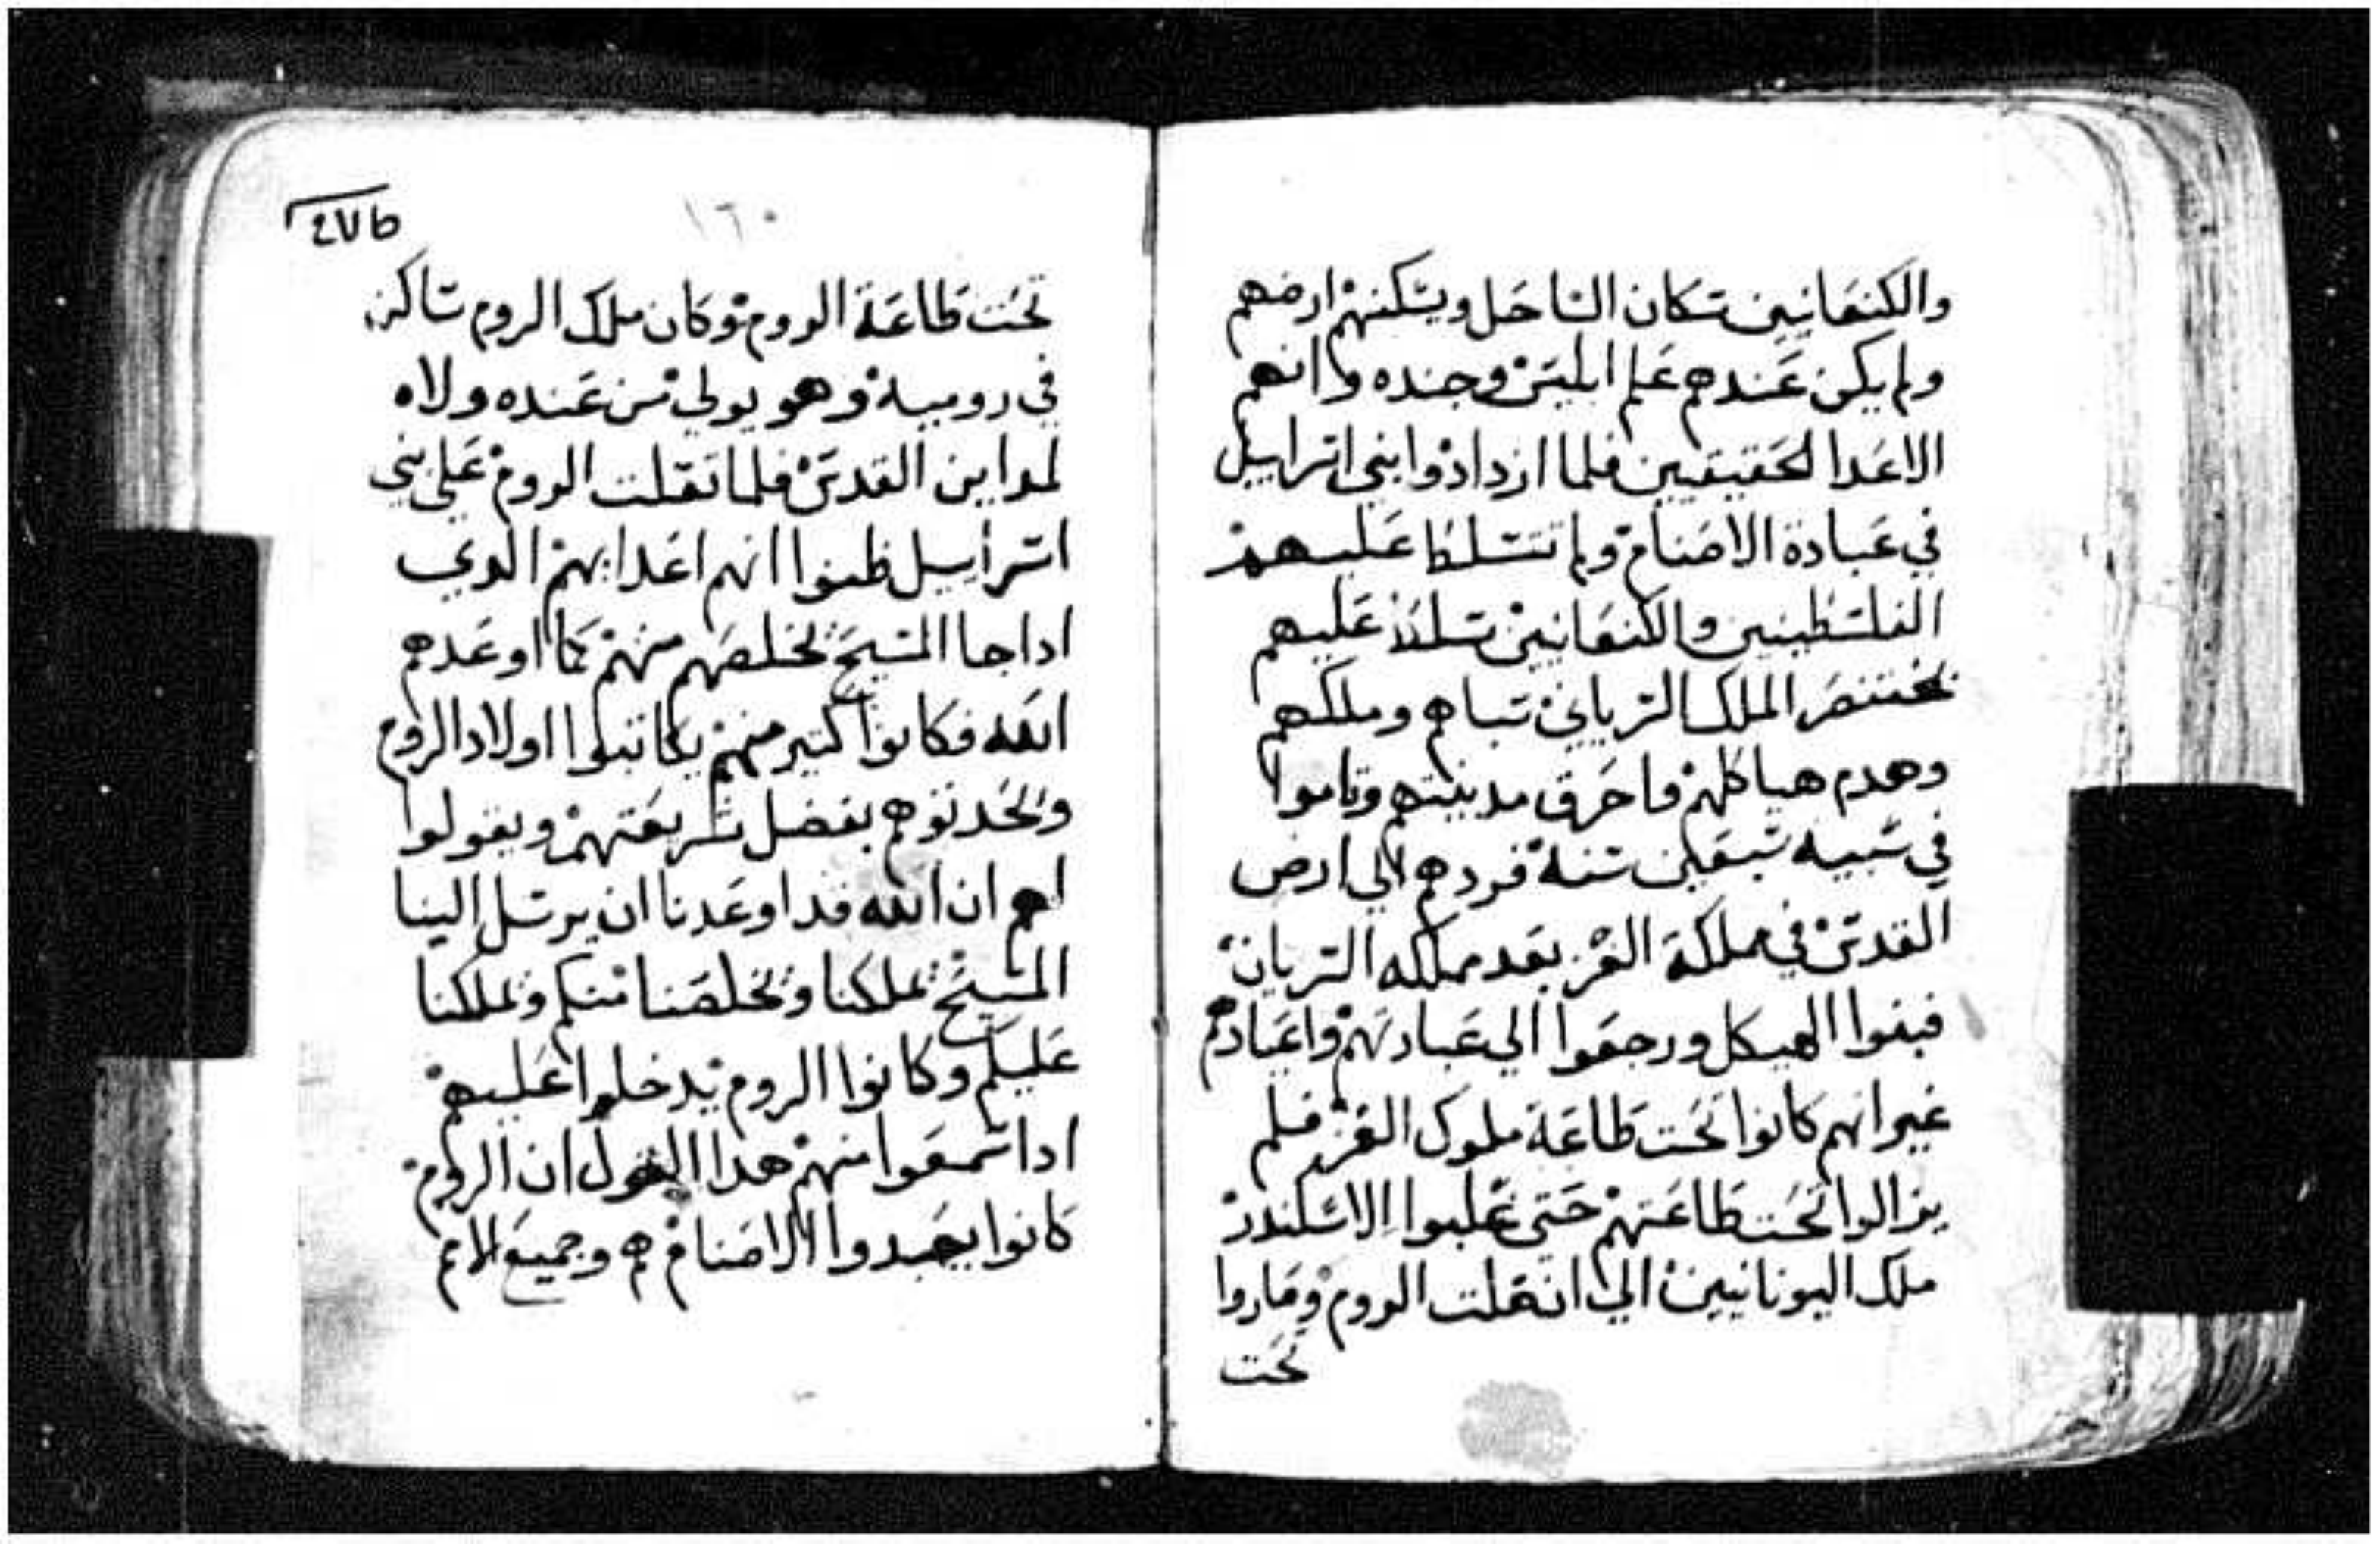 والكنعانيين سكان الساحل ويسكنهم ارضهم
ولم يكن عندهم علم ابليس وجنده وانهم
الاعدا الحقيقيين فلما ازدادوا بني اسراييل
في عبادة الاصنام ولم تتسلط عليهم
الفلسطينين والكنعانيين سلط عليهم
بختنصر الملك السرياني سباهم وملكهم
وهدم هياكلهم واحرق مدينتهم وقاموا
في سبيه سبعين سنة فردهم الي ارض
القدس في مملكة الفرس بعد مملكه السريان
فبنوا الهيكل ورجعوا الي عبادتهم واعيادهم
غير انهم كانوا تحت طاعة ملوك الفرس فلم
يزالوا تحت طاعتهم حتى غلبوا الاسكندر
ملك اليونانيين الي انتقلت الروم وصاروا
تحت
١٦٠
تحت طاعة الروم وكان ملك الروم ساكن
في رومية وهو يولي من عنده ولاه
لمداين القدس فلما تقلت الروم علي بني
اسراييل ظنوا انهم اعدايهم الدي
اداجا المسيح يخلصهم منهم كما اوعدهم
الله فكانوا كتير منهم يكاتبوا اولاد الروم
ويحدتوهم بفضل شريعتهم ويقولوا
لهم ان الله قد اوعدنا ان يرسل الينا
المسيح يملكنا ويخلصنا منكم ويملكنا
عليكم وكانوا الروم يدخلوا عليهم
ادا سمعوا منهم هدا القول ان الروم
كانوا يعبدوا الاصنام هم وجميع الامم